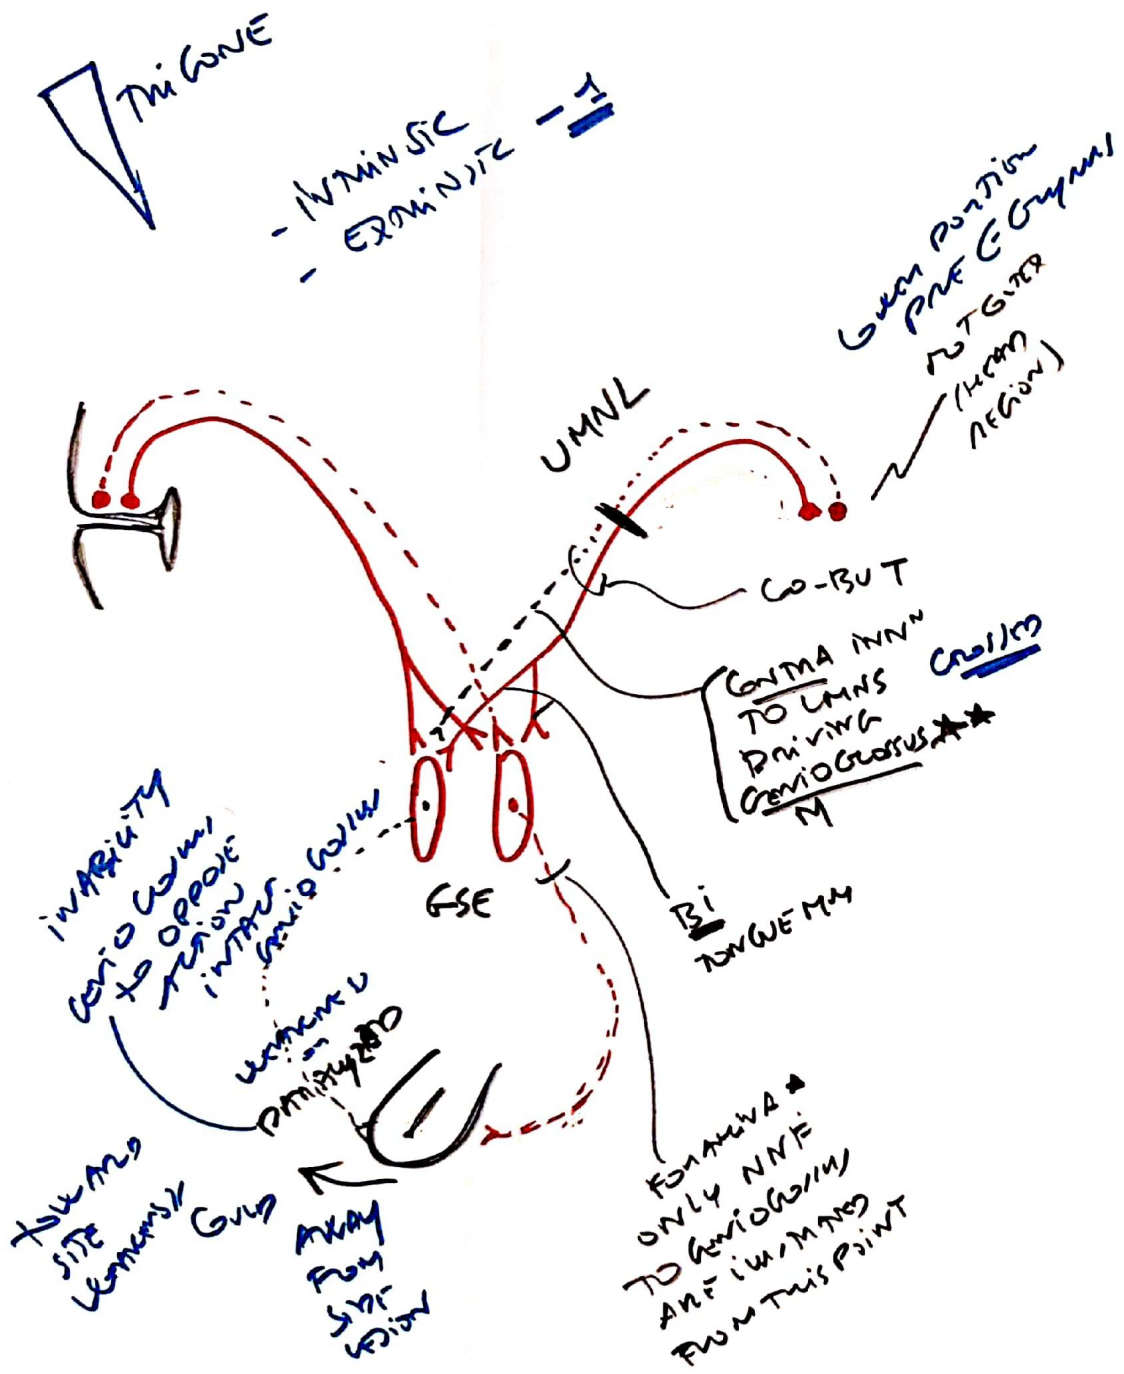 TRIGONE
- INTRINSIC
- EXTRINSIC - 1
LOWER PORTION
PRE C GYRUS
ROTGUTX
(HEAD
REGION)
UMNL
CO-BUT
CONTRA INNN
TO LMNS CROSSED
DRIVING
GENIOGLOSSUS ★★
M
GSE
Bi
TONGUE MM
INABILITY
GENIOGLOSSUS
TO OPPOSE
ACTION
INTACT
GENIOGLOSSUS
WEAKENED
OR
PARALYZED
TOWARD
SITE
WEAKNESS
AWAY
FROM
SIDE
LESION
FORAMINA ★
ONLY NNF
TO GENIOGLOSSUS
ARE ILLUMINATED
FROM THIS POINT